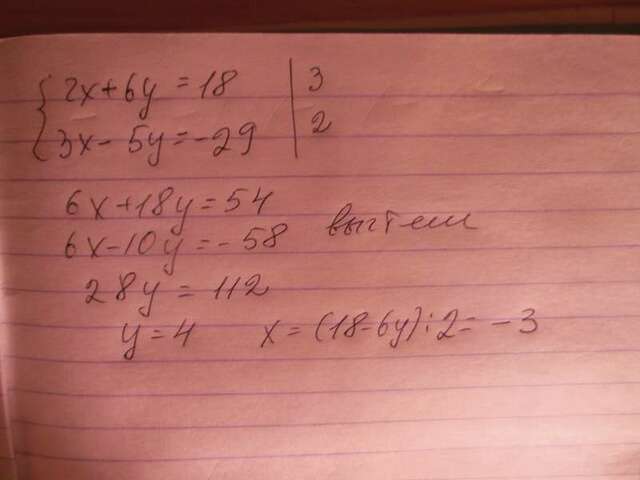 2x+6y=18 | 3
3x-5y=-29 | 2
6x+18y=54
6x-10y=-58 вычтем
28y=112
y=4 x=(18-6y):2=-3